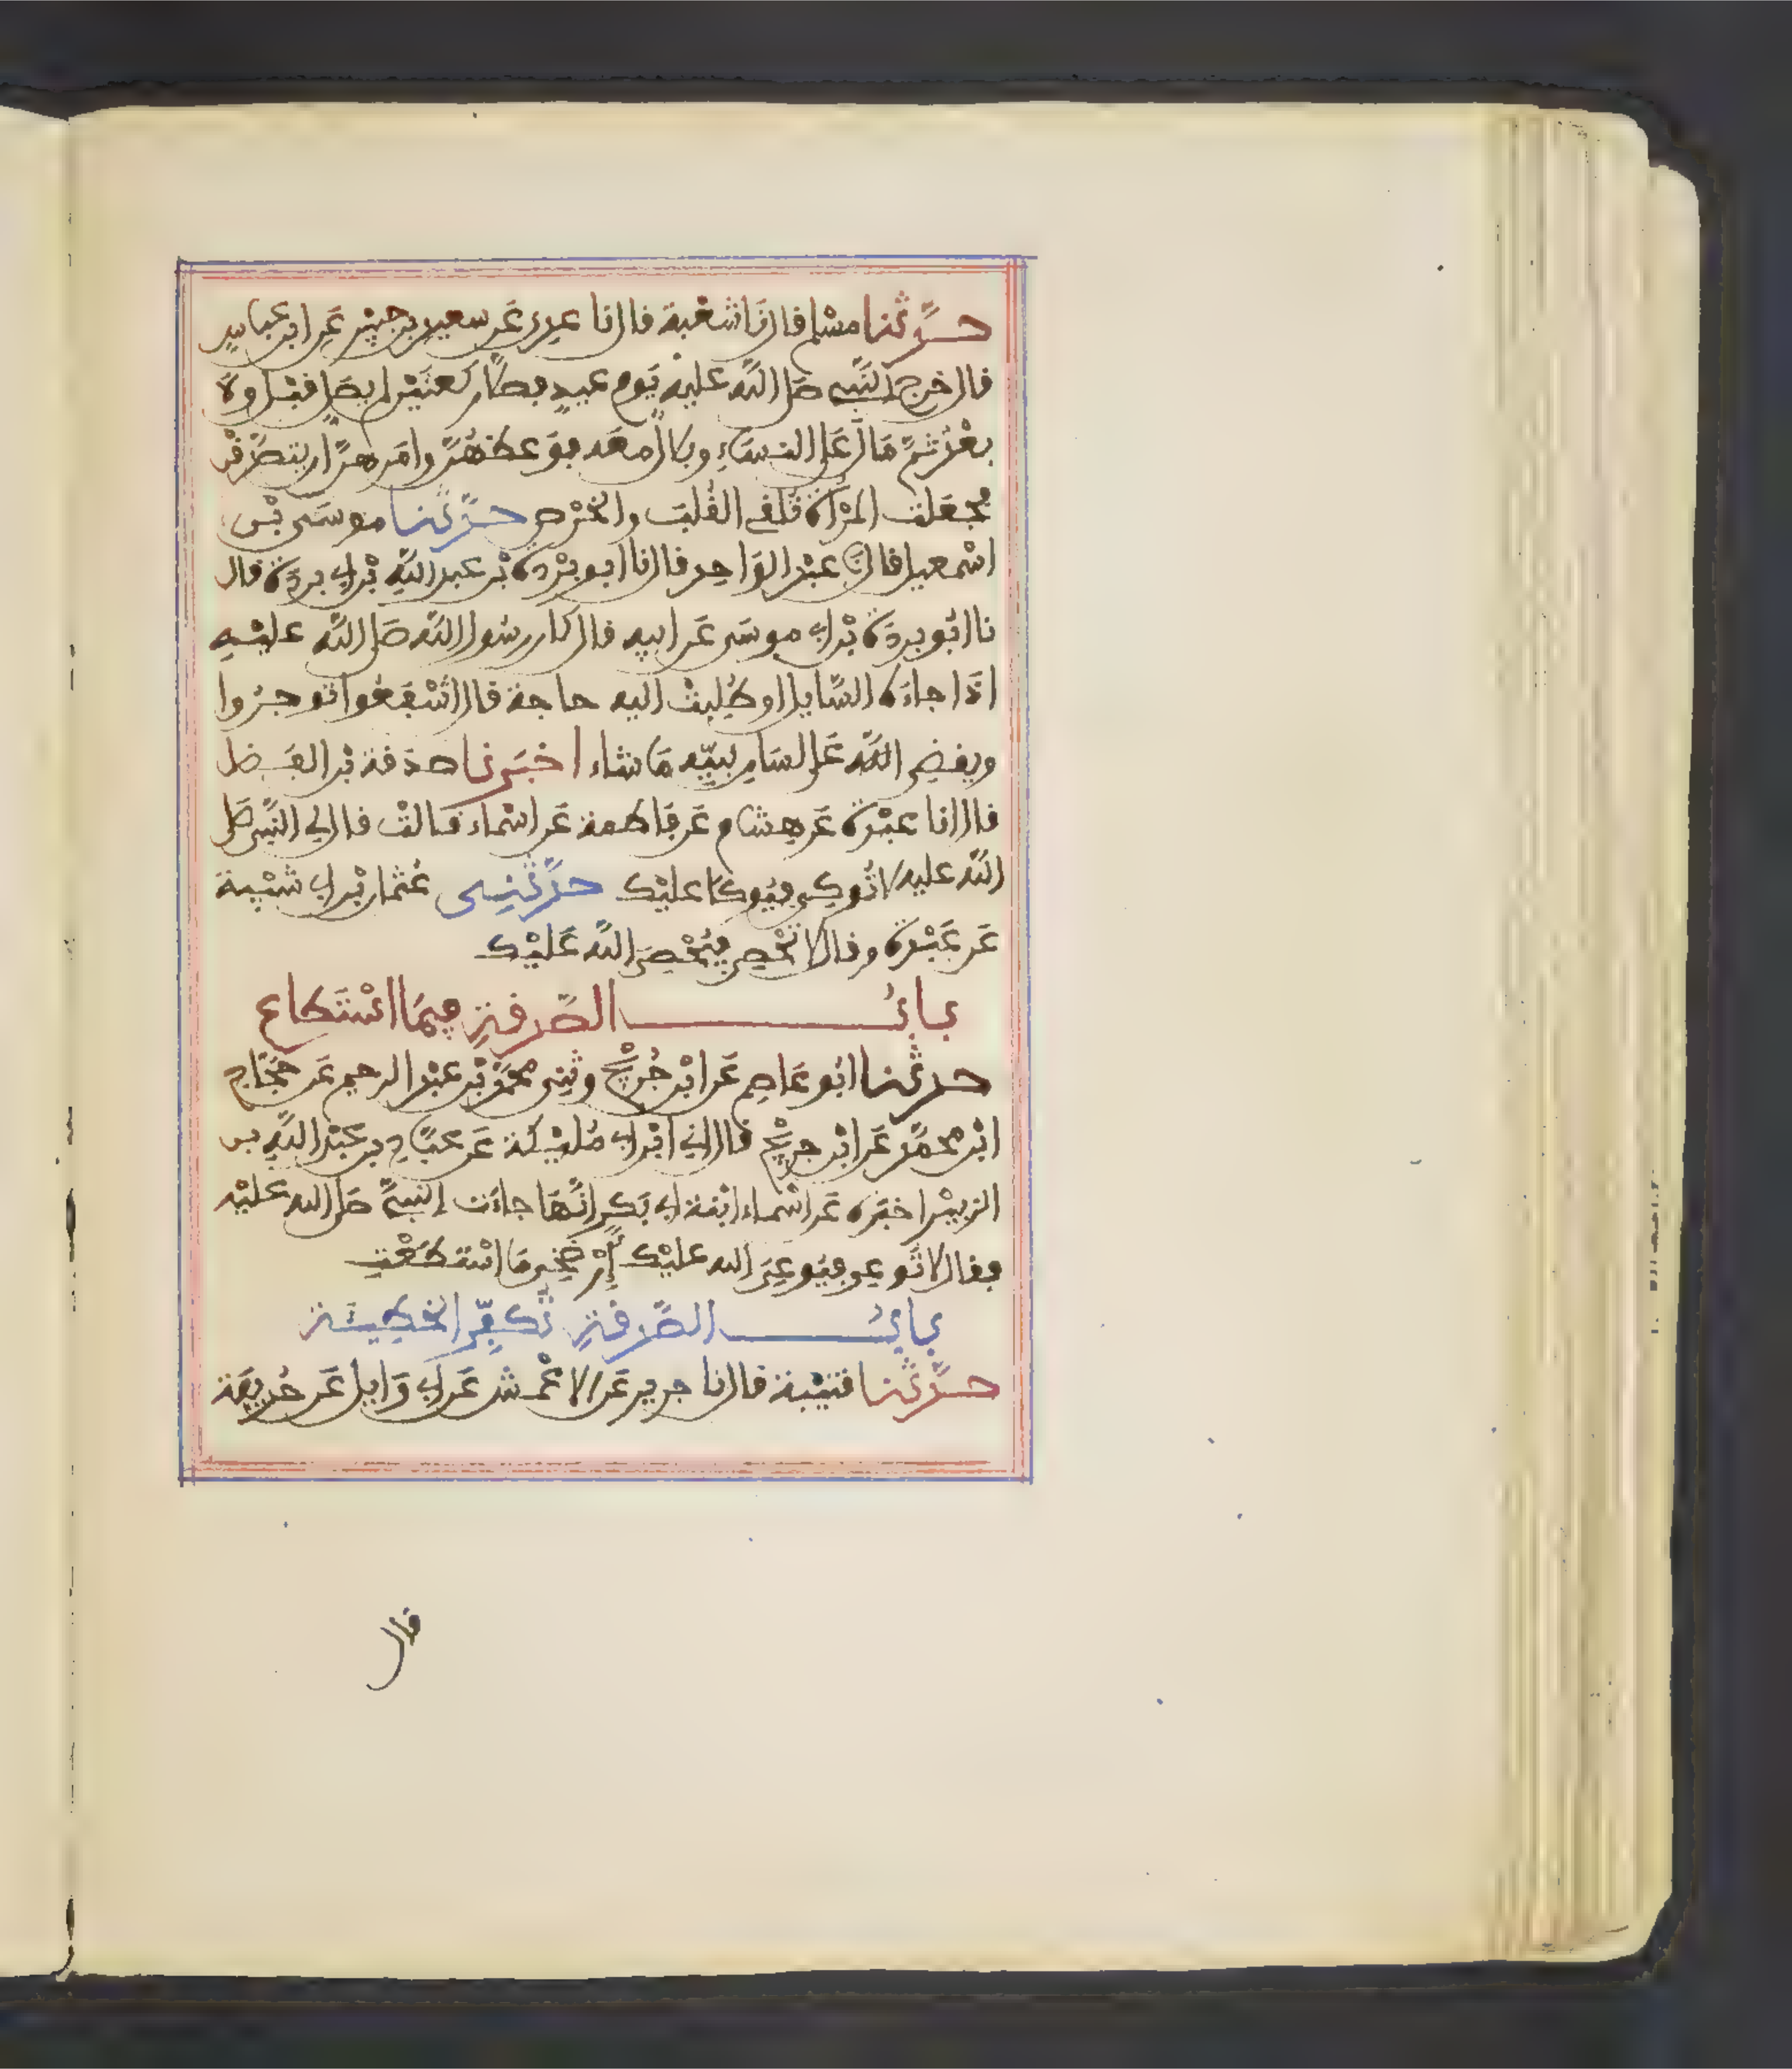 حدثنا مسلم قال نا شعبة قال نا عدي عن سعيد بن جبير عن ابن عباس
قال خرج النبي صلى الله عليه يوم عيد فصلى ركعتين لم يصل قبل ولا
بعد ثم مال على النساء وبلال معه فوعظهن وامرهن ان يتصدقن
فجعلت المرأة تلقي القلب والخرص حدثنا موسى بن
اسمعيل قال نا عبد الواحد قال نا ابو بردة بن عبد الله بن ابي بردة قال
نا ابو بردة بن ابي موسى عن ابيه قال كان رسول الله صلى الله عليه
اذا جاءه السايل او طلبت اليه حاجة قال اشفعوا توجروا
ويقضي الله على لسان نبيه ما شاء اخبرنا صدقة بن الفضل
قال انا عبدة عن هشام عن فاطمة عن اسماء قالت قال لي النبي صلى
الله عليه لا توكي فيوكا عليك حدثني عثمان بن ابي شيبة
عن عبدة وقال لا تحصي فيحصي الله عليك
باب الصدقة فيما استطاع
حدثنا ابو عاصم عن ابن جريج وثني محمد بن عبد الرحيم عن حجاج
ابن محمد عن ابن جريج قال اني ابن ابي مليكة عن عباد بن عبد الله بن
الزبير اخبره عن اسماء ابنة ابي بكر انها جاءت النبي صلى الله عليه
فقال لا توعي فيوعي الله عليك ارضخي ما استطعت
باب الصدقة تكفر الخطيئة
حدثنا قتيبة قال نا جرير عن الاعمش عن ابي وايل عن حذيفة
قال